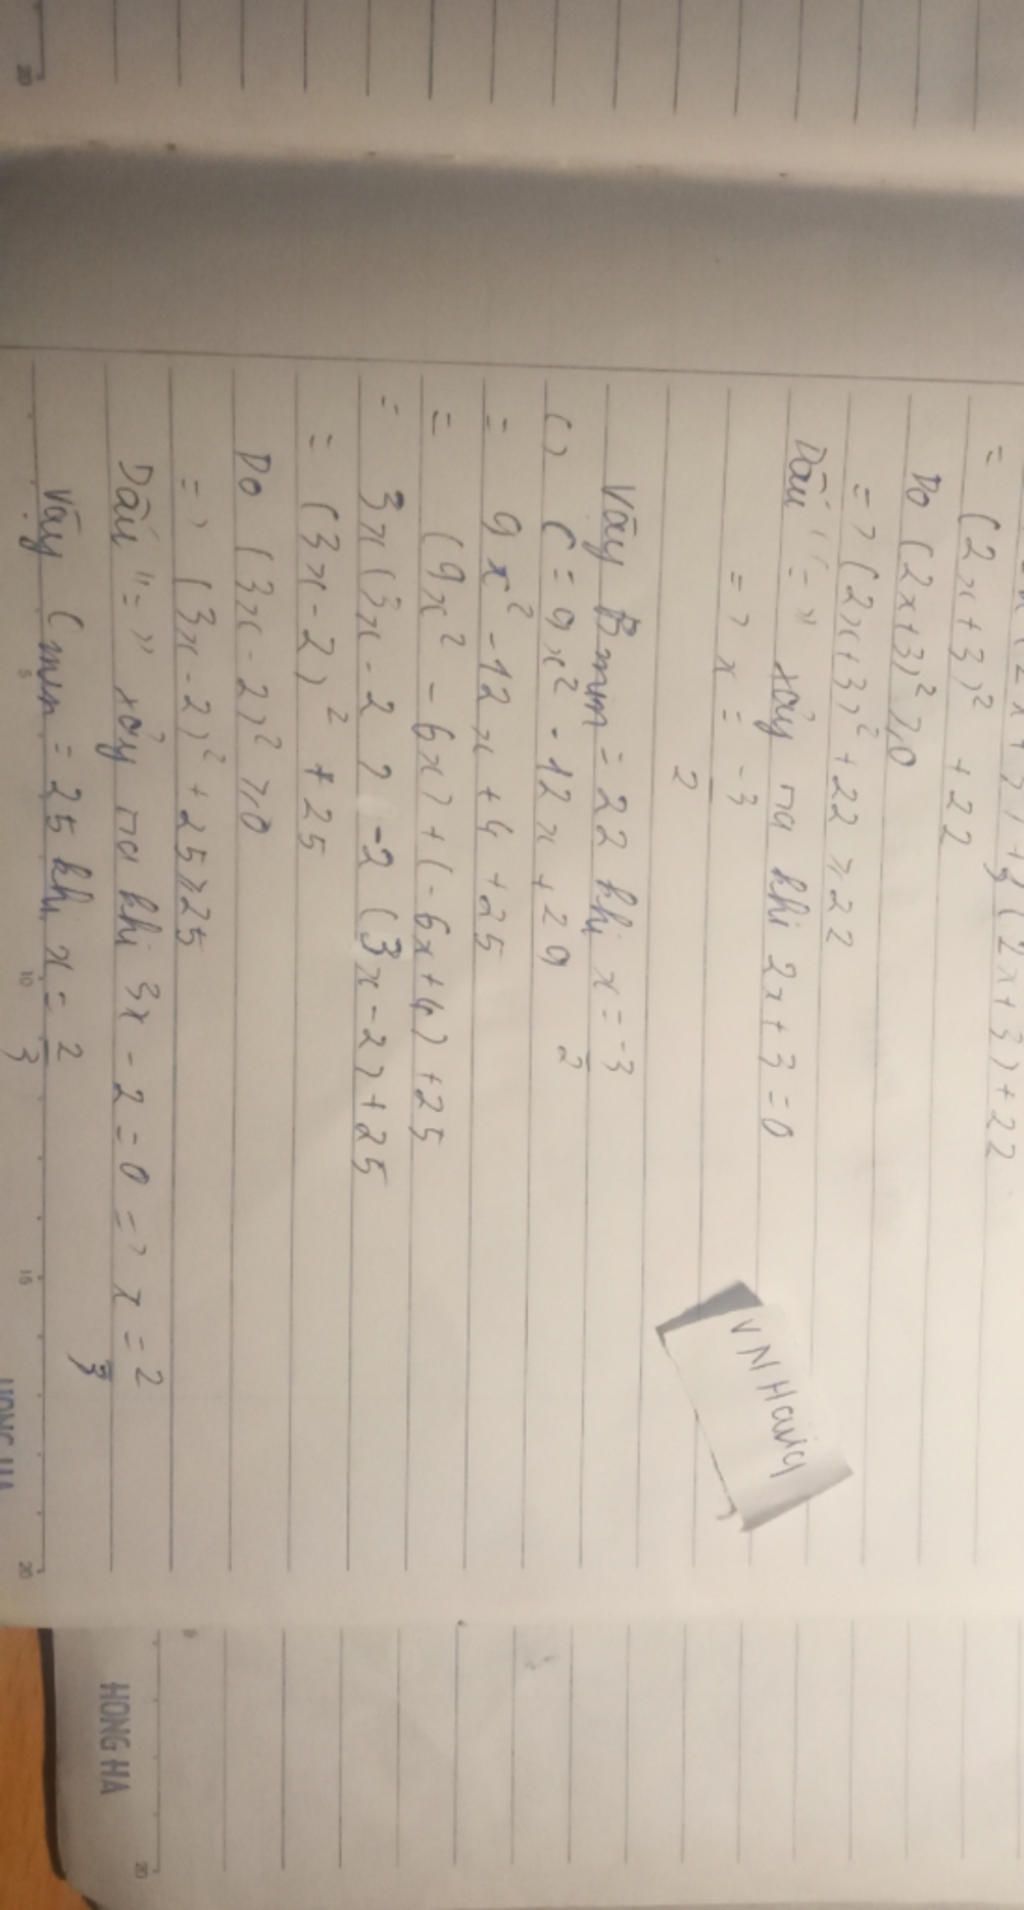 + 3(2x+3)+22
= (2x+3)² +22
Do (2x+3)² ≥ 0
=> (2x+3)² +22 ≥ 22
Dấu "=" xảy ra khi 2x+3=0
=> x = -3
2
Vậy Bmin = 22 khi x = -3
2
c) C = 9x² - 12x + 29
= 9x² - 12x + 4 + 25
= (9x² - 6x) + (-6x+4) + 25
= 3x(3x-2) -2(3x-2)+25
= (3x-2)² + 25
Do (3x-2)² ≥ 0
=> (3x-2)² + 25 ≥ 25
Dấu "=" xảy ra khi 3x - 2 = 0 => x = 2
3
Vậy Cmin = 25 khi x = 2
3
VN Hang
5 10 15 20
HONG HA
HONG HA
20
20